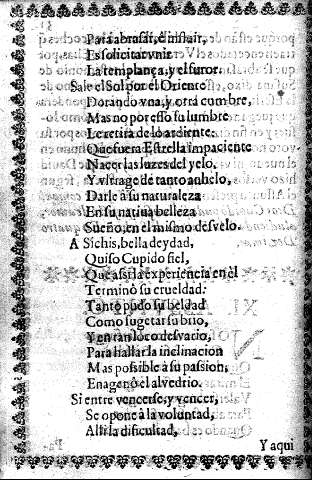 Para abrasar, è instuir,
Es solicitar vnir
La templança, y el furor.
Sale el Sol por el Oriente
Dorando vna, y otra cumbre,
Mas no por esso su lumbre
Le retira de lo ardiente.
Que fuera Estrella impaciente
Nacer las luzes del yelo.
Y vltrage de tanto anhelo,
Darle à su naturaleza
En su natiua belleza
Sueño, en el mismo desvelo.
A Sichis, bella deydad,
Quiso Cupido fiel,
Que assi la experiencia en èl
Terminò su crueldad:
Tanto pudo su beldad
Como sugetar su brio,
Y en tan loco desvario,
Para hallar la inclinacion
Mas possible à su passion,
Enagenò el alvedrio.
Si entre vencerse, y vencer,
Se opone à la voluntad,
Alli la dificultad,
Y aqui